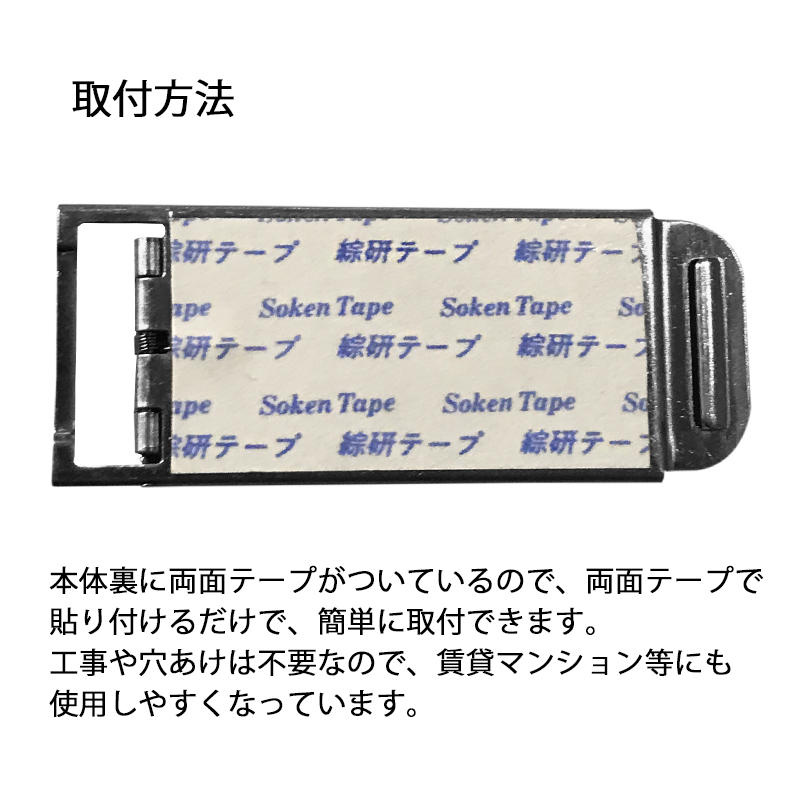 取付方法
Soken Tape
綜研テープ 綜研テープ 綜研テープ
ape Soken Tape Soken Tape So
綜研テープ 綜研テープ 綜研テープ
ape Soken Tape Soken Tape So
綜研テープ 綜研テープ 綜研テープ
本体裏に両面テープがついているので、両面テープで
貼り付けるだけで、簡単に取付できます。
工事や穴あけは不要なので、賃貸マンション等にも
使用しやすくなっています。